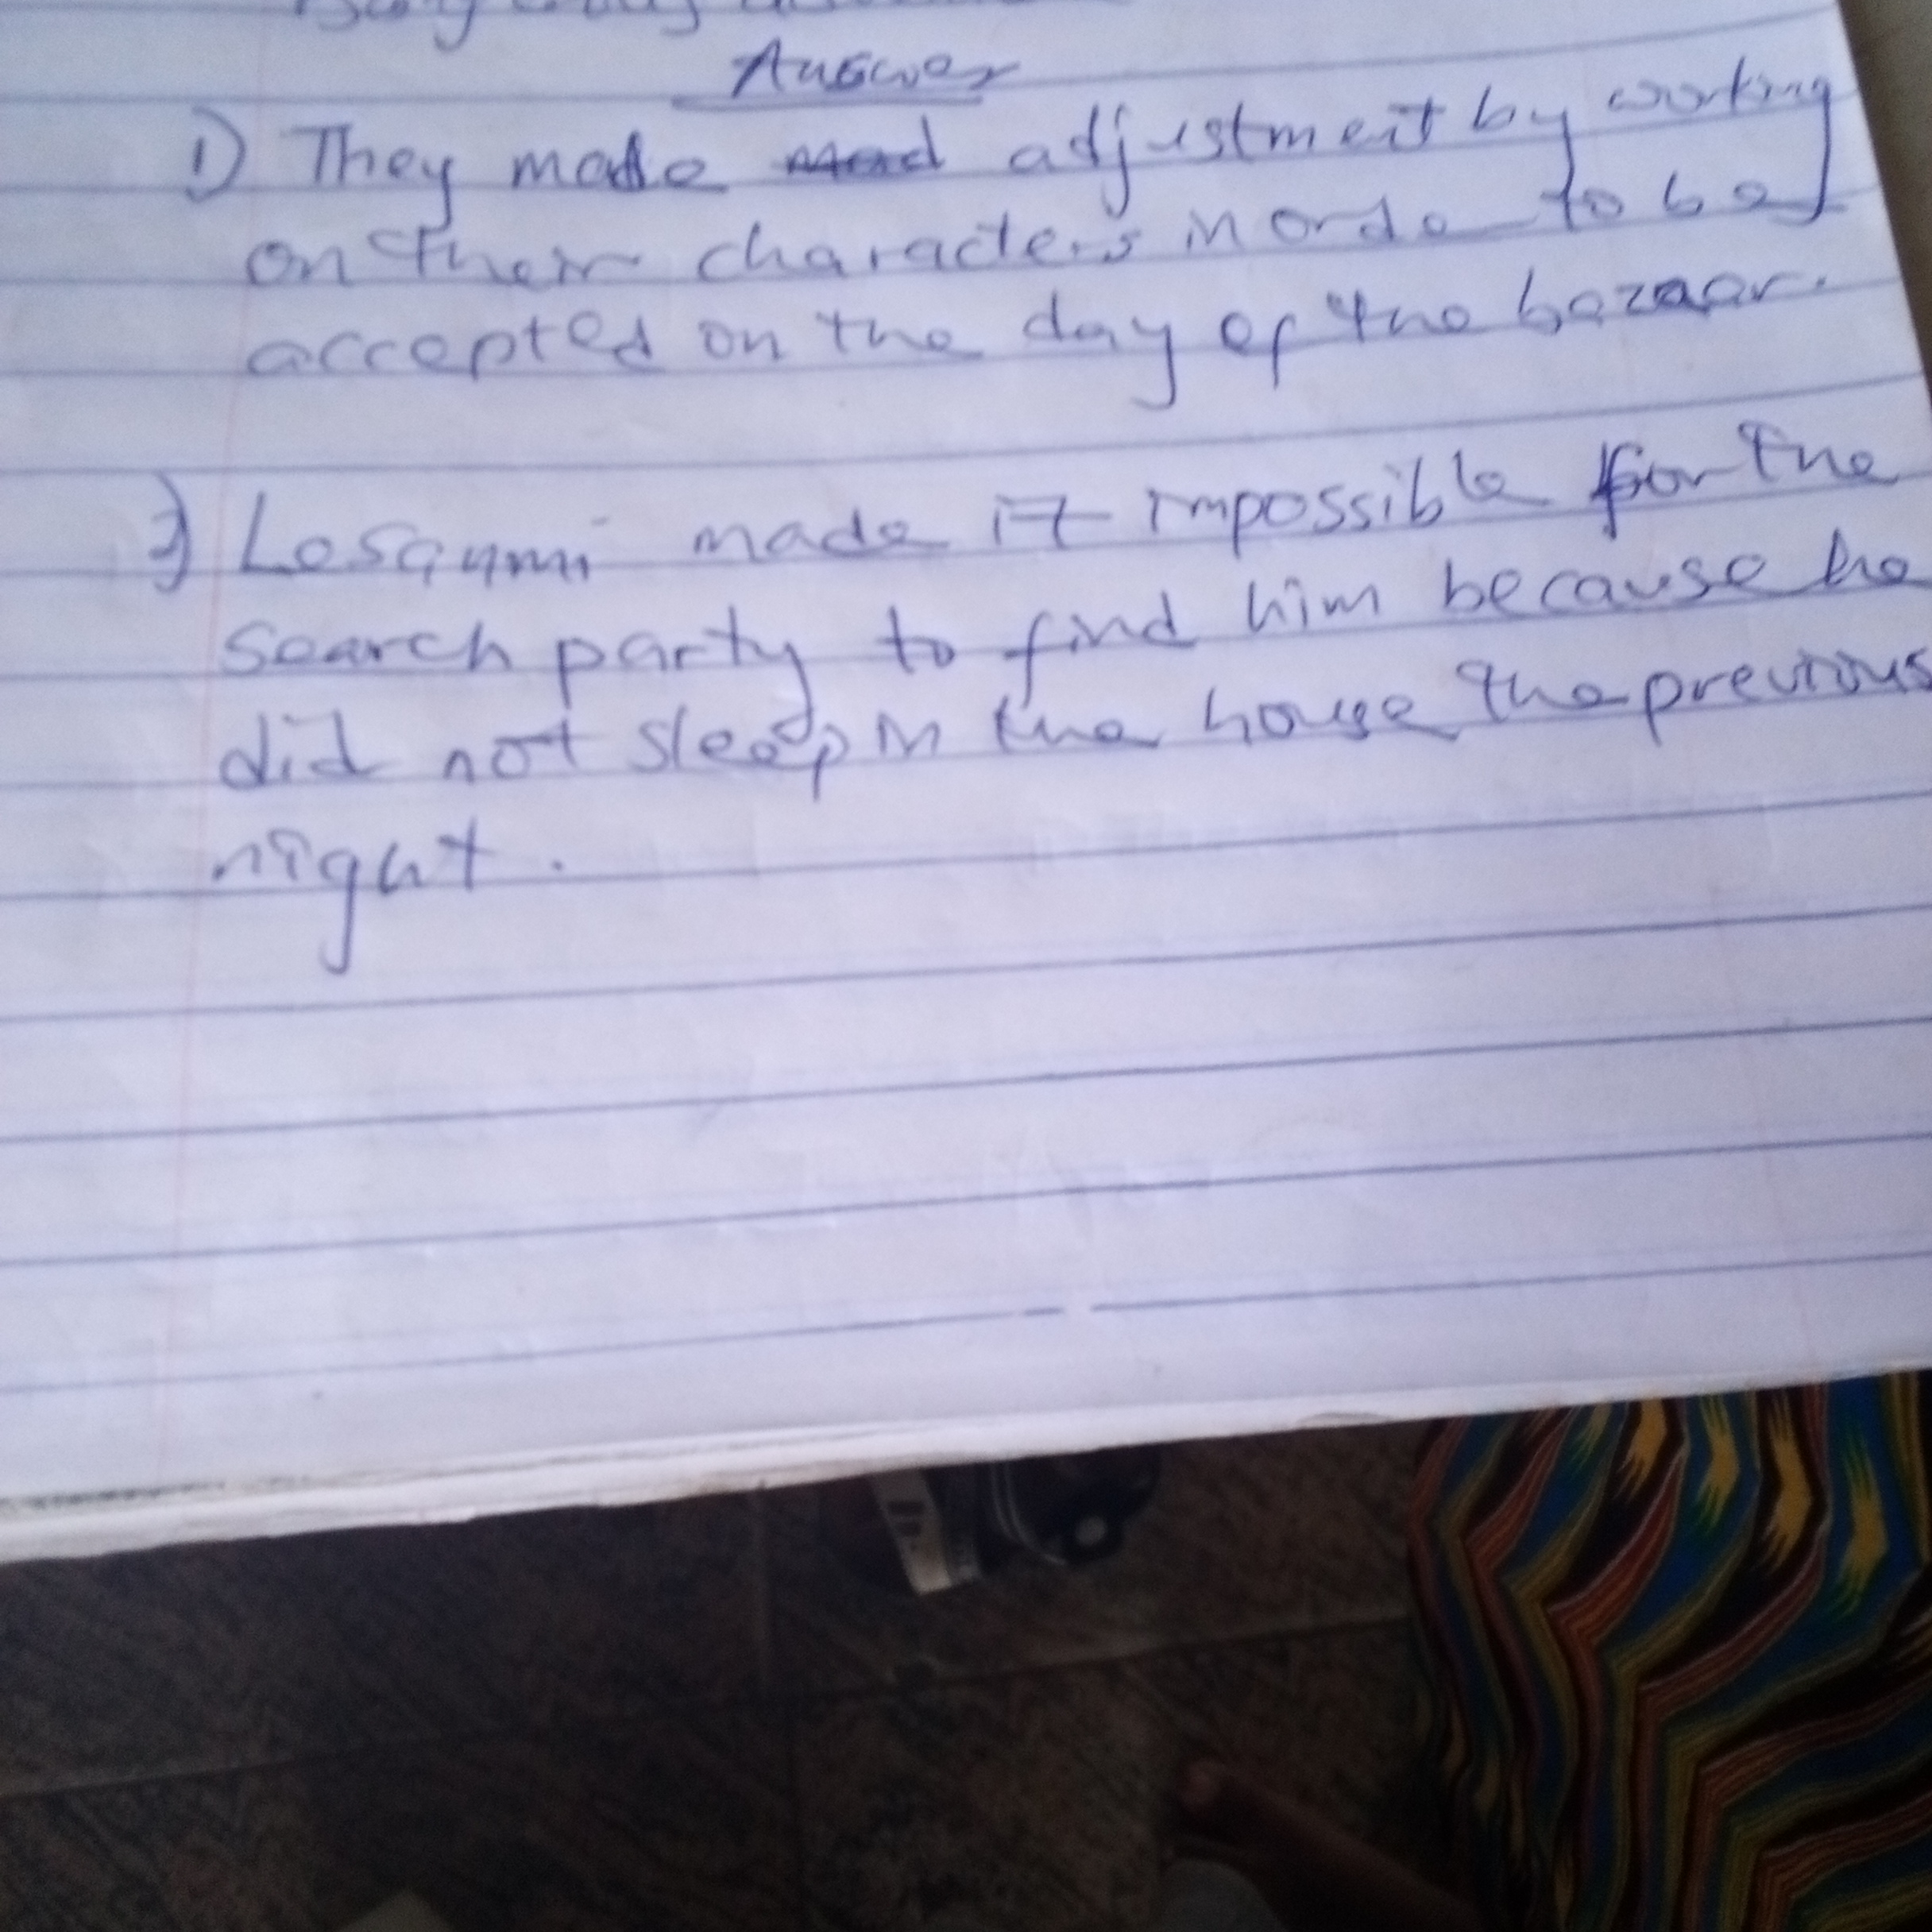 Answer
1) They made adjustment by working
on their characters in orde to be
accepted on the day of the bazaar.
2) Losaymi made it impossible for the
search party to find him because he
did not sleep in the house the previous
night.